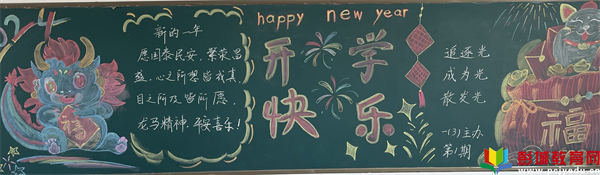 happy new year
新的一年
愿国泰民安，繁荣昌
盛，心之所想皆成真，
目之所及皆所愿，
龙马精神，平安喜乐！
福
开学
快乐
追逐光
成为光
散发光
一(3)主办
第1期
福
彭城教育网
www.pcjyedu.cn